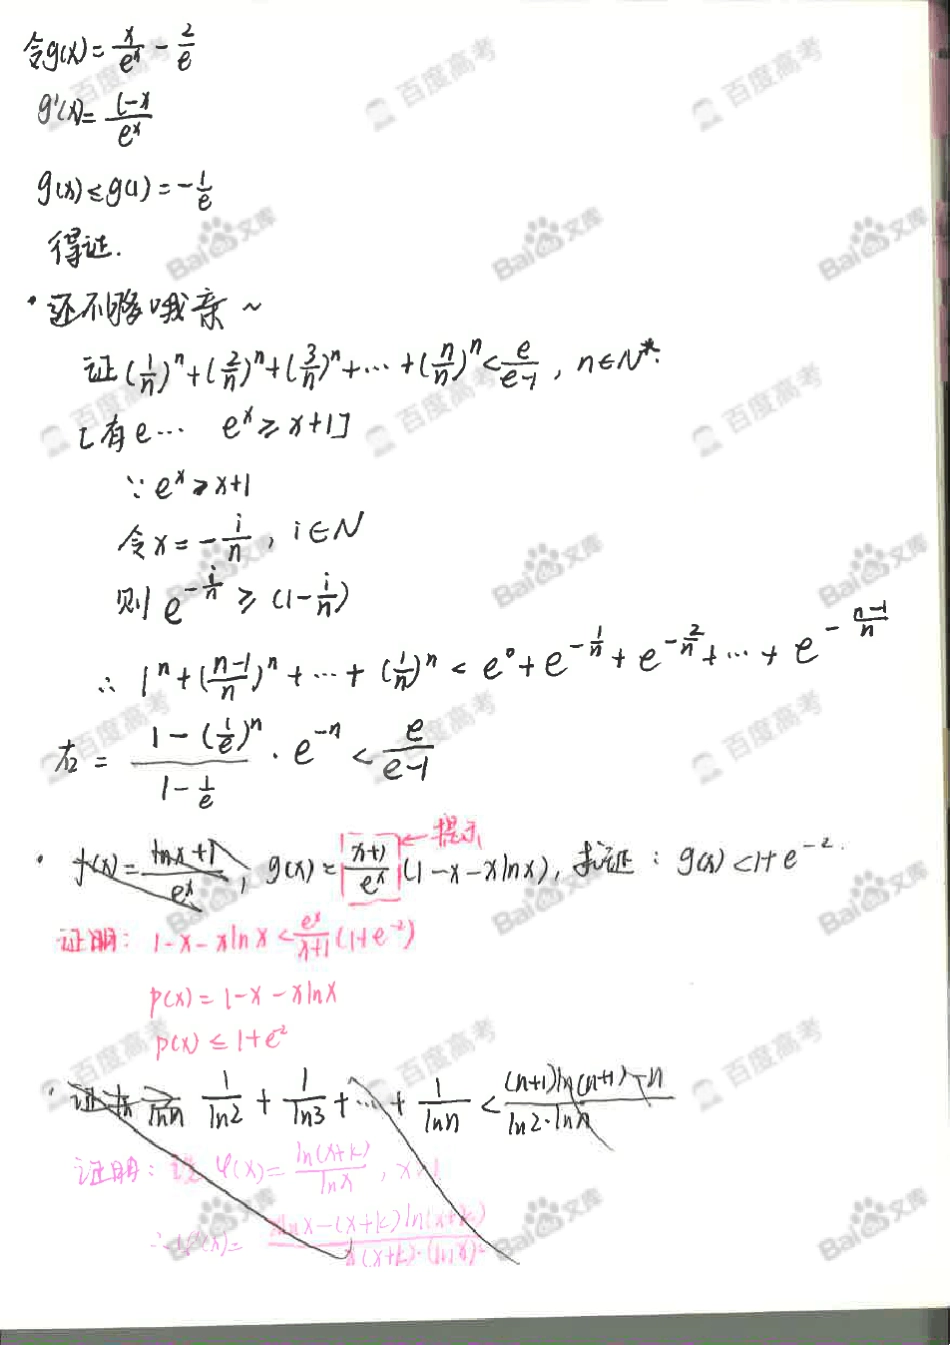 令g(x)=x/e^x - 2/e
g'(x)=(1-x)/e^x
g(x)≤g(1)=-1/e
得证.
·还不够哦亲~
证(1/n)^n+(2/n)^n+(3/n)^n+…+(n/n)^n<e/(e-1), n∈N*.
[有e… e^x≥x+1]
∵e^x≥x+1
令x=-i/n, i∈N
则e^(-i/n)≥(1-i/n)
∴1^n+((n-1)/n)^n+…+(1/n)^n<e^0+e^(-1/n)+e^(-2/n)+…+e^(-(n-1)/n)
右=(1-(1/e)^n)/(1-1/e)·e^(-n)<e/(e-1)
提示
·f(x)=(lnx+1)/e^x, g(x)=(x+1)/e^x(1-x-xlnx), 求证: g(x)<1+e^(-2).
证明: 1-x-xlnx<e^x/(x+1)(1+e^(-2))
p(x)=1-x-xlnx
p(x)≤1+e^(-2)
·证 1/ln2+1/ln3+…+1/lnn<((n+1)ln(n+1)-n)/(ln2·lnn)
证明: 设φ(x)=ln(x+k)/lnx, x>1
∴φ'(x)=(xlnx-(x+k)ln(x+k))/(x(x+k)·(lnx)²)
百度高考
Bai度文库